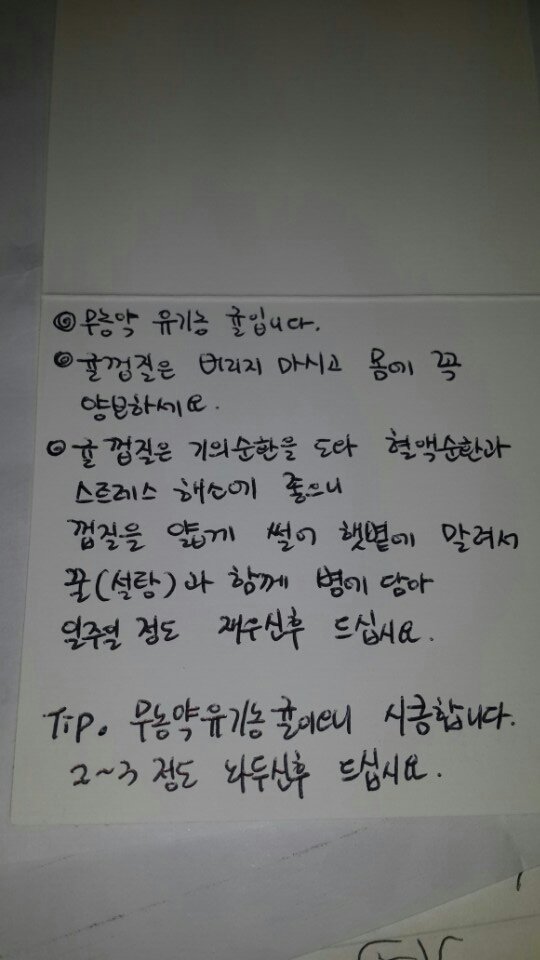 ◎ 무농약 유기농 귤입니다.
◎ 귤껍질은 버리지 마시고 몸에 꼭
양보하세요.
◎ 귤 껍질은 기의순환을 도와 혈액순환과
스트레스 해소에 좋으니
껍질을 얇게 썰어 햇볕에 말려서
꿀(설탕)과 함께 병에 담아
일주일 정도 재우신후 드십시요.
Tip. 무농약유기농귤이라 시큼합니다.
2~3 정도 놔두신후 드십시요.